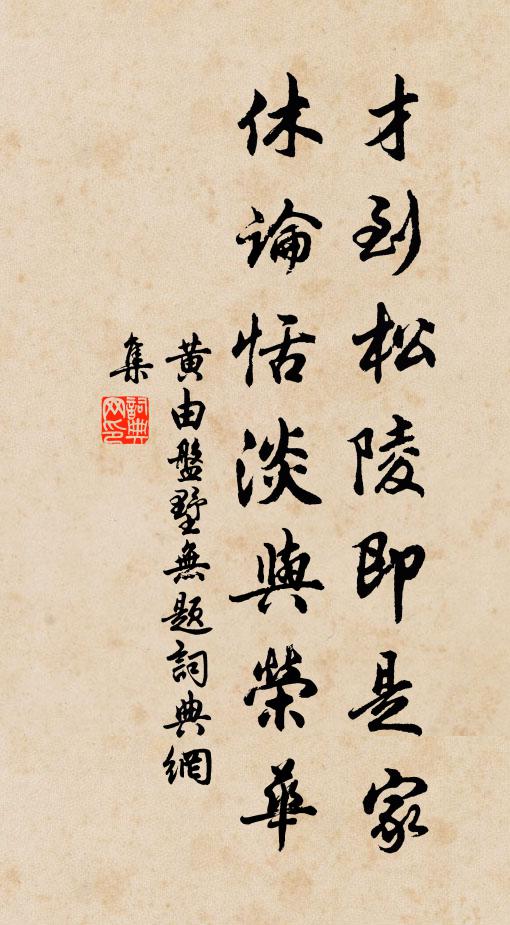 才到松陵即是家
休論恬淡與榮華
黄由盤墅無題詞典網
集
詞典
网印